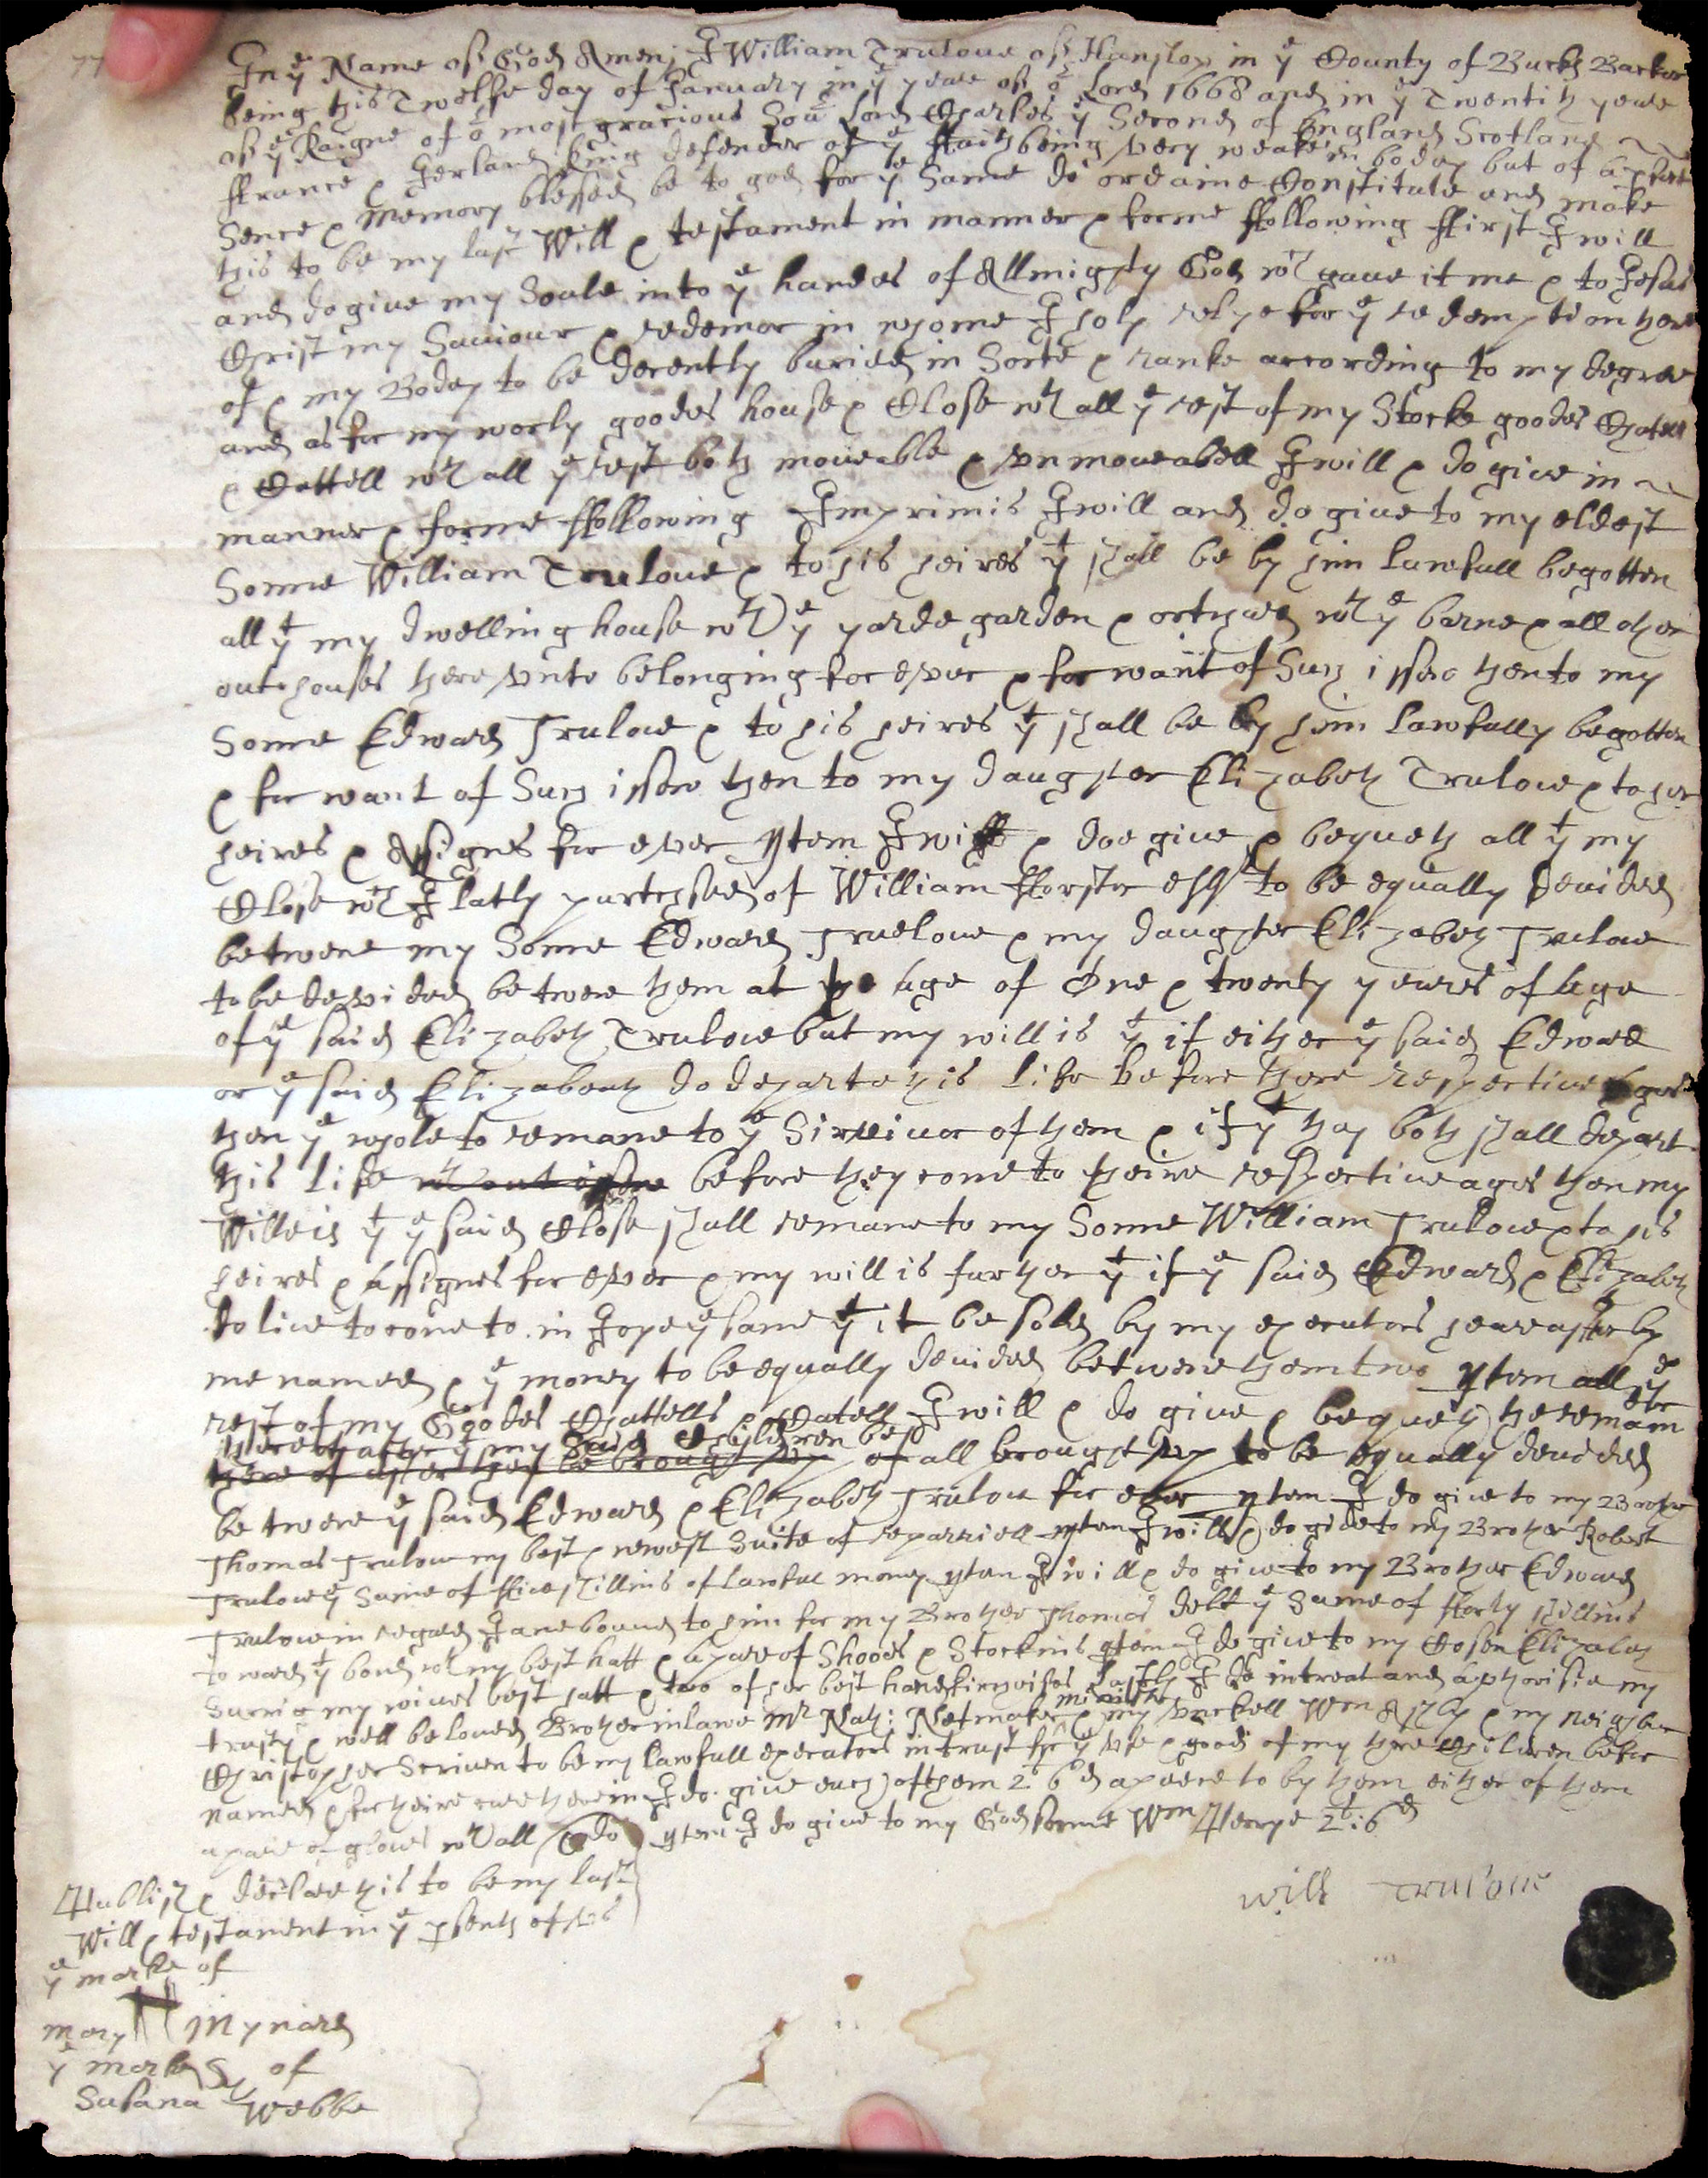 77
In ye Name of God Amen; I William Trulove of Hanslop in ye County of Bucks Barber
being this Twelfe day of January in ye yeare of or Lord 1668 and in ye Twentith yeare
of ye Raigne of or most gracious Sou Lord Charles ye Second of England Scotland
ffrance & Ierland King defender of ye ffaith being very weake in bodey but of a pfect
Sence & Memory blessed be to god for ye Same do ordaine Constitute and make
this to be my last Will & testament in manner & forme ffollowing ffirst I will
and do give my Soule into ye handes of Allmighty God wch gave it me & to Jesus
Christ my Saviour & redemer in whome I holy relye for ye redemption here
of & my Bodey to be decently buried in Sorte & ranke according to my degree
and as for my worly goodes house & Close wth all ye rest of my Stocke goodes Chatell
& Cattell wth all ye rest both moveable & vnmoveabell I will & do give in
manner & forme ffollowing Imprimis I will and do give to my eldest
Sonne William Trulove & to his heires yt shall be by him lawfull begotten
all yt my dwelling house wth ye yarde garden & orthard wth ye barne & all other
outhouses there vnto belonging for ever & for want of Such issew then to my
Sonne Edward Trulove & to his heires yt shall be by him lawfully begotten
& for want of Such issew then to my daughter Elizabeth Trulove & to her
heires & Assignes for ever Item I will & doe give & bequeth all yt my
Close wch I latly purchised of William fforster esqr to be equally devided
betwene my Sonne Edward Truelove & my daughter Elizabeth Trulove
to be devided betwene them at ye age of One & twenty yeares of age
of ye said Elizabeth Trulove but my will is yt if either ye said Edward
or ye said Elizabeath do departe this life before there respective ages
then ye whole to remane to ye Surviuor of them & if yt they both shall depart
this life wthout issew before they come to theire respective ages then my
Will is yt ye said Close shall remane to my Sonne William Trulove & to his
heires & assignes for ever & my will is further yt if ye said Edward & Elizabeth
do live to come to in Joye ye same yt it be sold by my executors heareafter by
me named & ye money to be equally devided betwene them two Item all ye
rest of my Goodes Chattells & Catell I will & do give & bequeth the remain
there of after they be brought vp of all brought vp to be equally devided
betwene ye said Edward & Elizabeth Trulove for ever Item I do give to my Brother
Thomas Trulove my best & newest Suite of reparriell Item I will & do give to my Brother Robert
Trulove ye Sume of ffive shillins of lawfull money Item I will & do give to my Brother Edward
Trulove in regard I ame bound to him for my Brother Thomas debt ye Sume of fforty shillins
toward yt bond wth my best hatt & a paire of Shooes & Stockins Item I do give to my Cosen Elizabeth
my wives best hatt & two of her best Lastly I do intreat and athorisie my
trusty & well beloved Brother in lawe Mr Nath: & my vnckell Wm Ashby & my neighbor
Christopher Scriven to be my lawfull executors in trust for ye vse & good of my three Children before
named & for theire care therein I do give each of them 2s 6d apeece to by them either of them
a paire of gloves wth all & do Item I do give to my Godsonne Wm Thorpe 2s:6d
Publish & declare this to be my last
Will & testament in ye psenth of vs
ye marke of
mary Mynard
ye marke of
Susana Webbe
Will Trulove